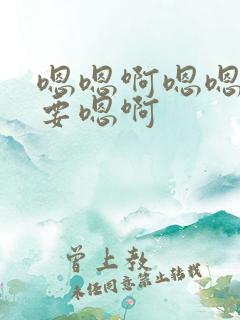 嗯嗯啊嗯嗯
要嗯啊
曾上教
未经同意禁止转载